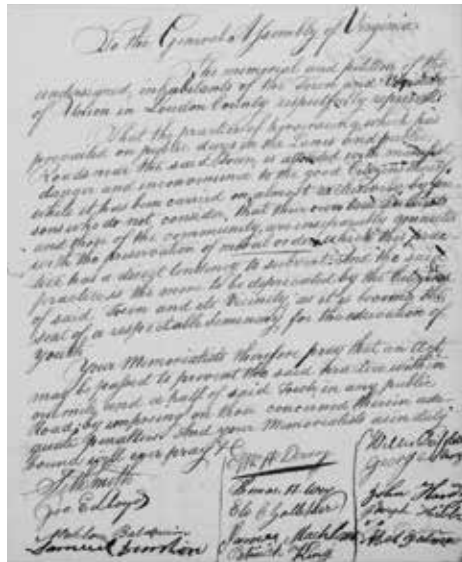 To the General Assembly of Virginia
The memorial and petition of the
undersigned, inhabitants of the Town and Vicinity
of Union in Loudon County respectfully represent
That the practice of horseracing, which has
prevailed on public days in the Lanes and public
Roads near the said Town, is attended with
danger and inconvenience to the good Citizens
while it has been carried on almost exclusively by per-
sons who do not consider, that their own
and those of the community, are inseparably connected
with the preservation of moral order which this prac-
tice has a direct tendency to subvert. And the said
practice is the more to be deprecated by the Citizens
of said Town and its Vicinity, as it is become the
seat of a respectable Seminary, for the education of
youth.
Your Memorialists therefore pray that an Act
may be passed to prevent the said practice within
one mile and a half of said Town, in any public
Road, by imposing on those concerned therein ade-
quate penalties. And your Memorialists as in duty
bound will ever pray &c
Smith
Lloyd
Samuel
Thomas
Gallaher
James
Patrick King
John
George